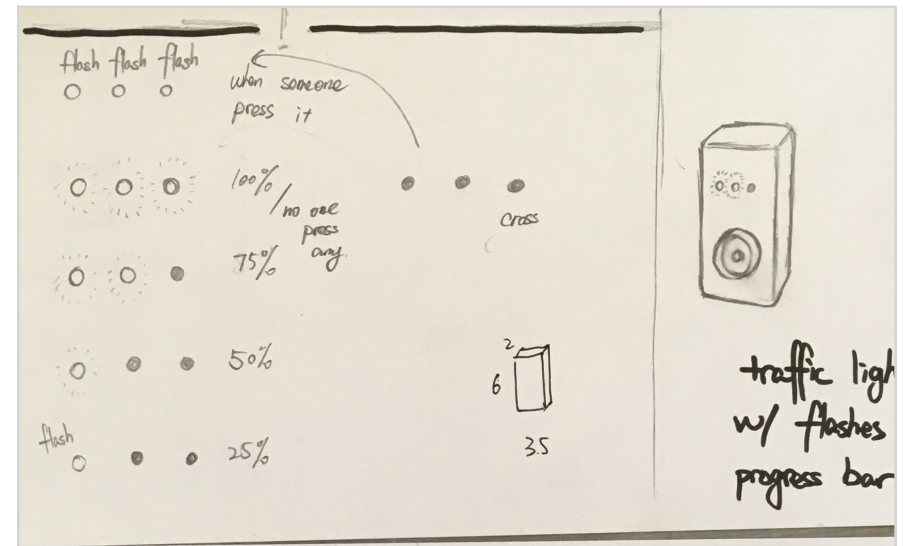 flash flash flash
when someone
press it
100% / no one
press
any.
75%
50%
flash
25%
cross
2
6
3.5
traffic ligh
w/ flashes
progress bar